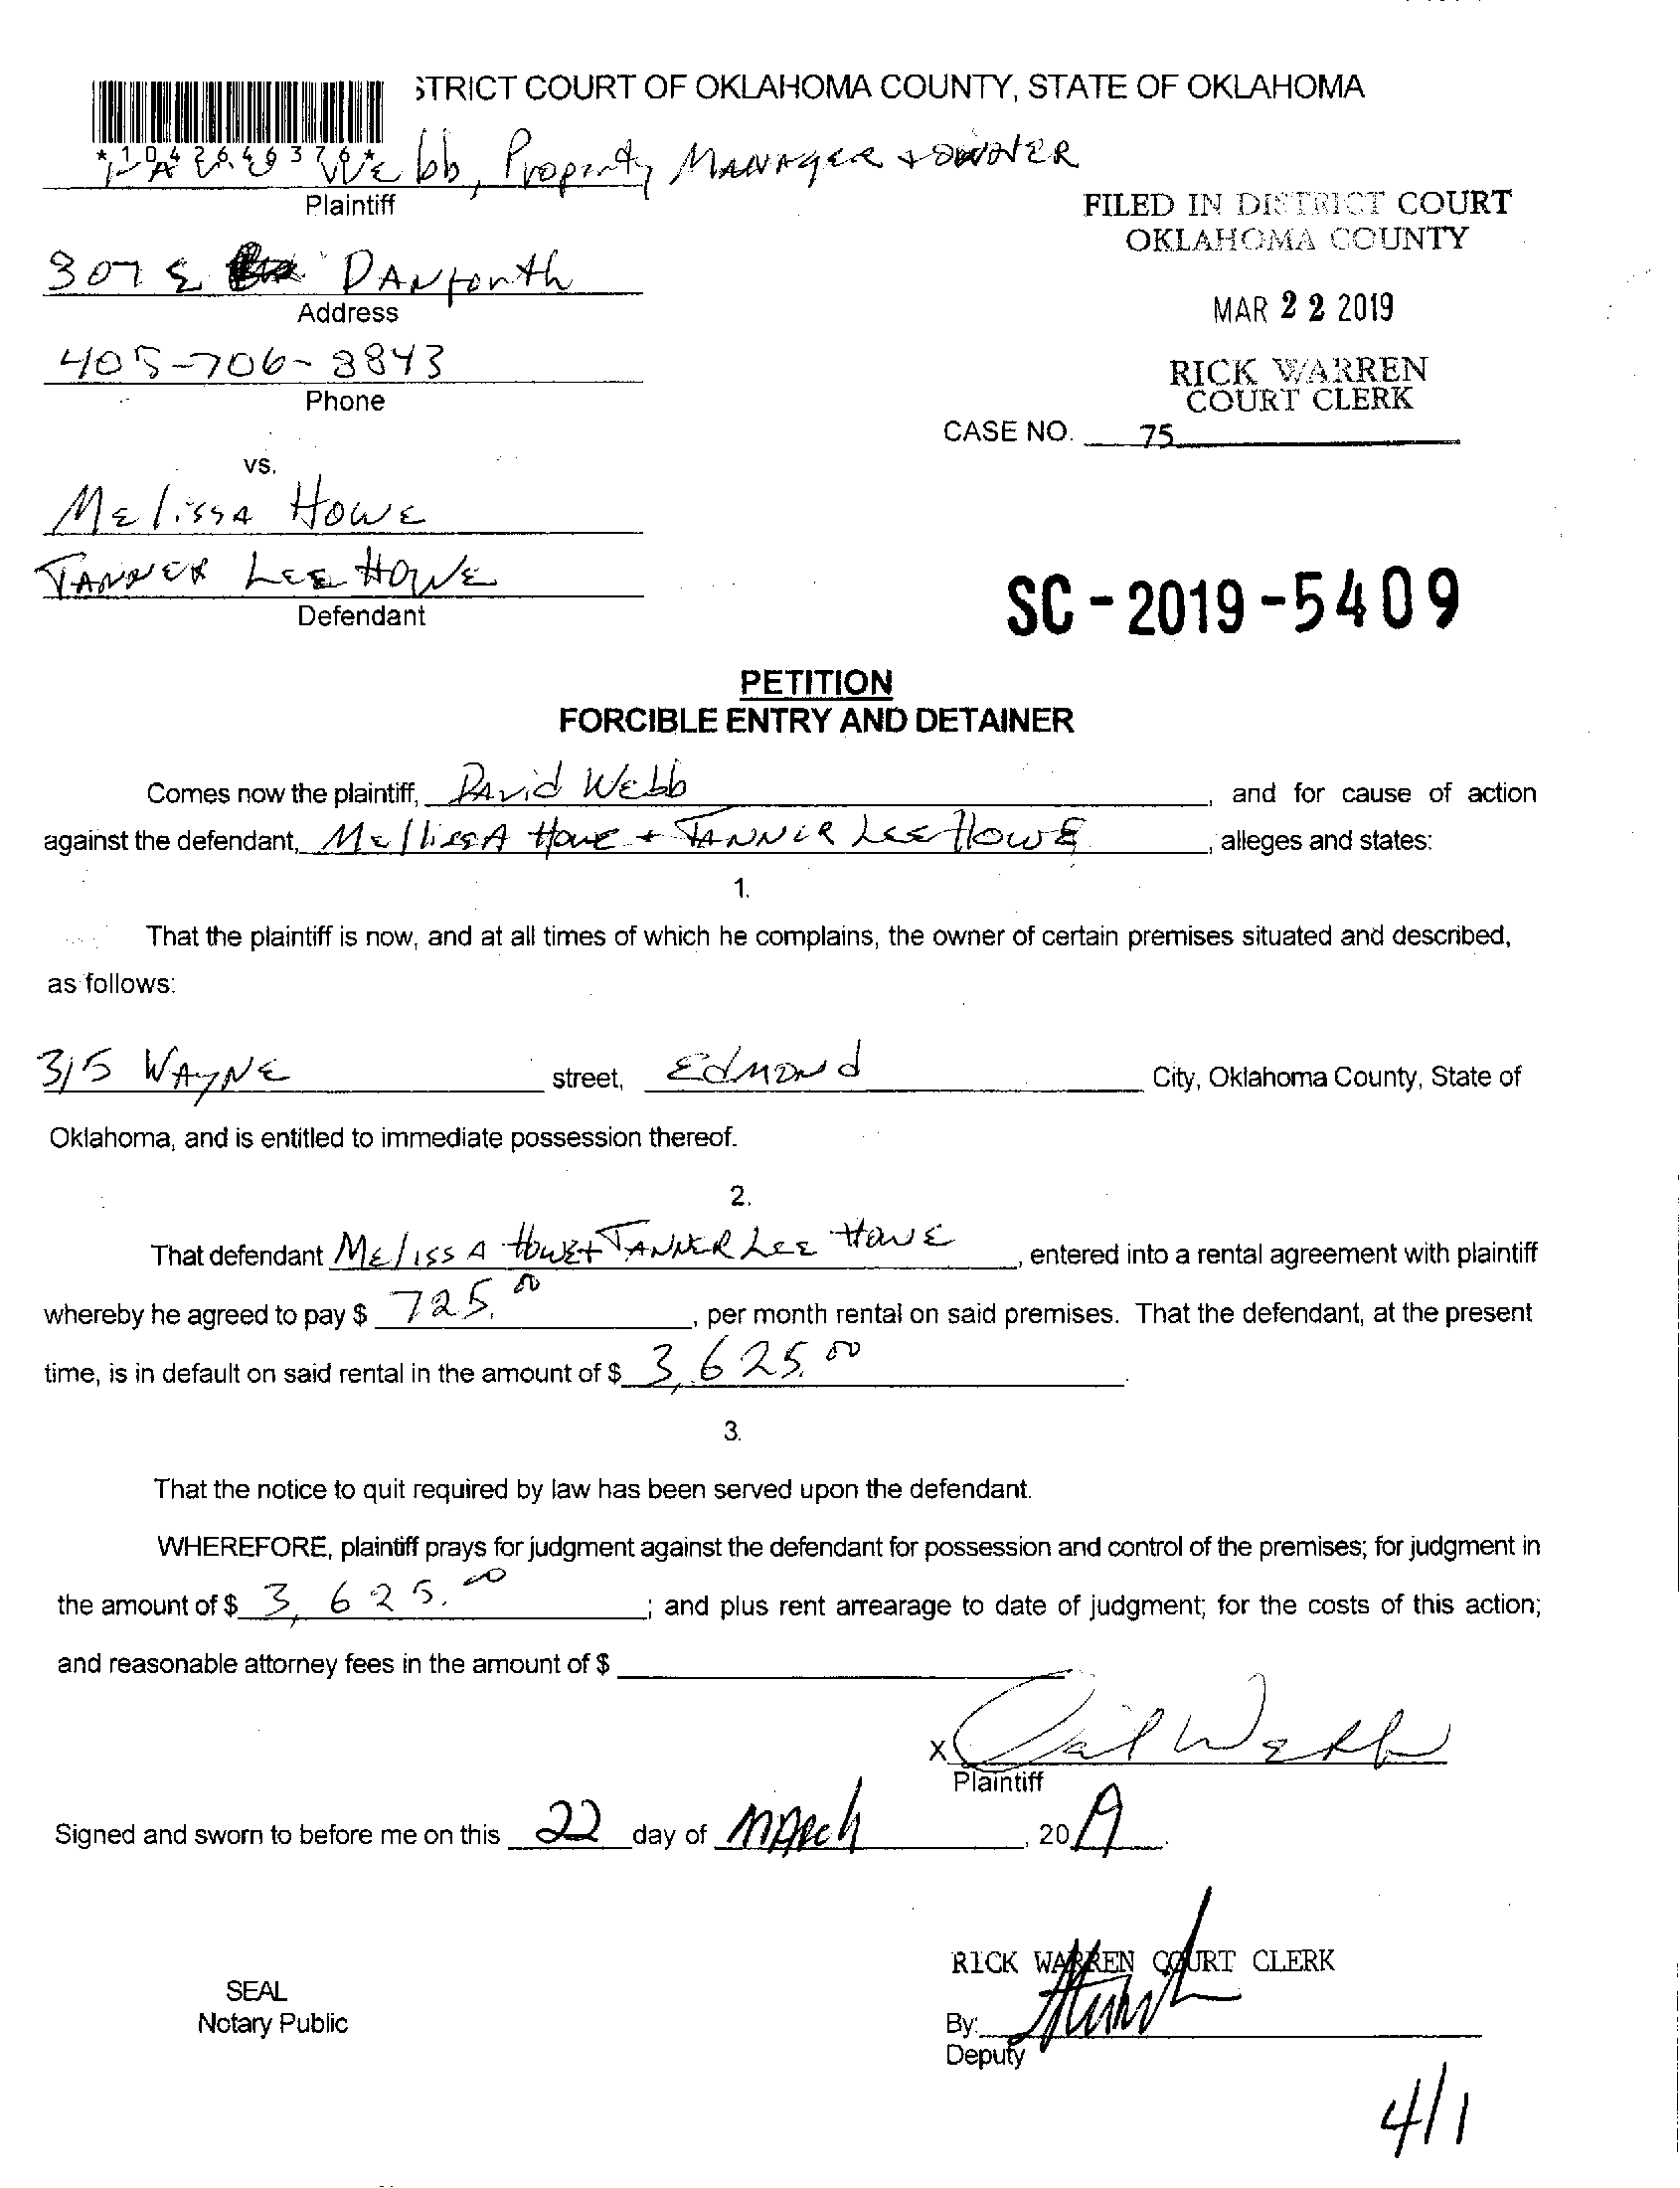 STRICT COURT OF OKLAHOMA COUNTY, STATE OF OKLAHOMA
*1042646376*
Webb, Property MANAGER + OWNER
Plaintiff
FILED IN DISTRICT COURT
OKLAHOMA COUNTY
307 E DANFORTH
Address
MAR 22 2019
405-706-8843
Phone
RICK WARREN
COURT CLERK
CASE NO. 75
vs.
Melissa Howe
TANNER LEE HOWE
Defendant
SC-2019-5409
PETITION
FORCIBLE ENTRY AND DETAINER
Comes now the plaintiff, David Webb, and for cause of action
against the defendant, Mellissa Howe + TANNER Lee Howe, alleges and states:
1.
That the plaintiff is now, and at all times of which he complains, the owner of certain premises situated and described,
as follows:
315 WAYNE street, Edmond City, Oklahoma County, State of
Oklahoma, and is entitled to immediate possession thereof.
2.
That defendant Melissa Howe + TANNER Lee Howe, entered into a rental agreement with plaintiff
whereby he agreed to pay $ 725.00, per month rental on said premises. That the defendant, at the present
time, is in default on said rental in the amount of $ 3,625.00.
3.
That the notice to quit required by law has been served upon the defendant.
WHEREFORE, plaintiff prays for judgment against the defendant for possession and control of the premises; for judgment in
the amount of $ 3,625.00; and plus rent arrearage to date of judgment; for the costs of this action;
and reasonable attorney fees in the amount of $
X
Plaintiff
Signed and sworn to before me on this 22 day of March, 20
RICK WARREN COURT CLERK
SEAL
Notary Public
By:
Deputy
4/1